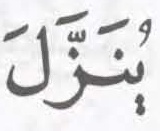 يُنَزَّلَ